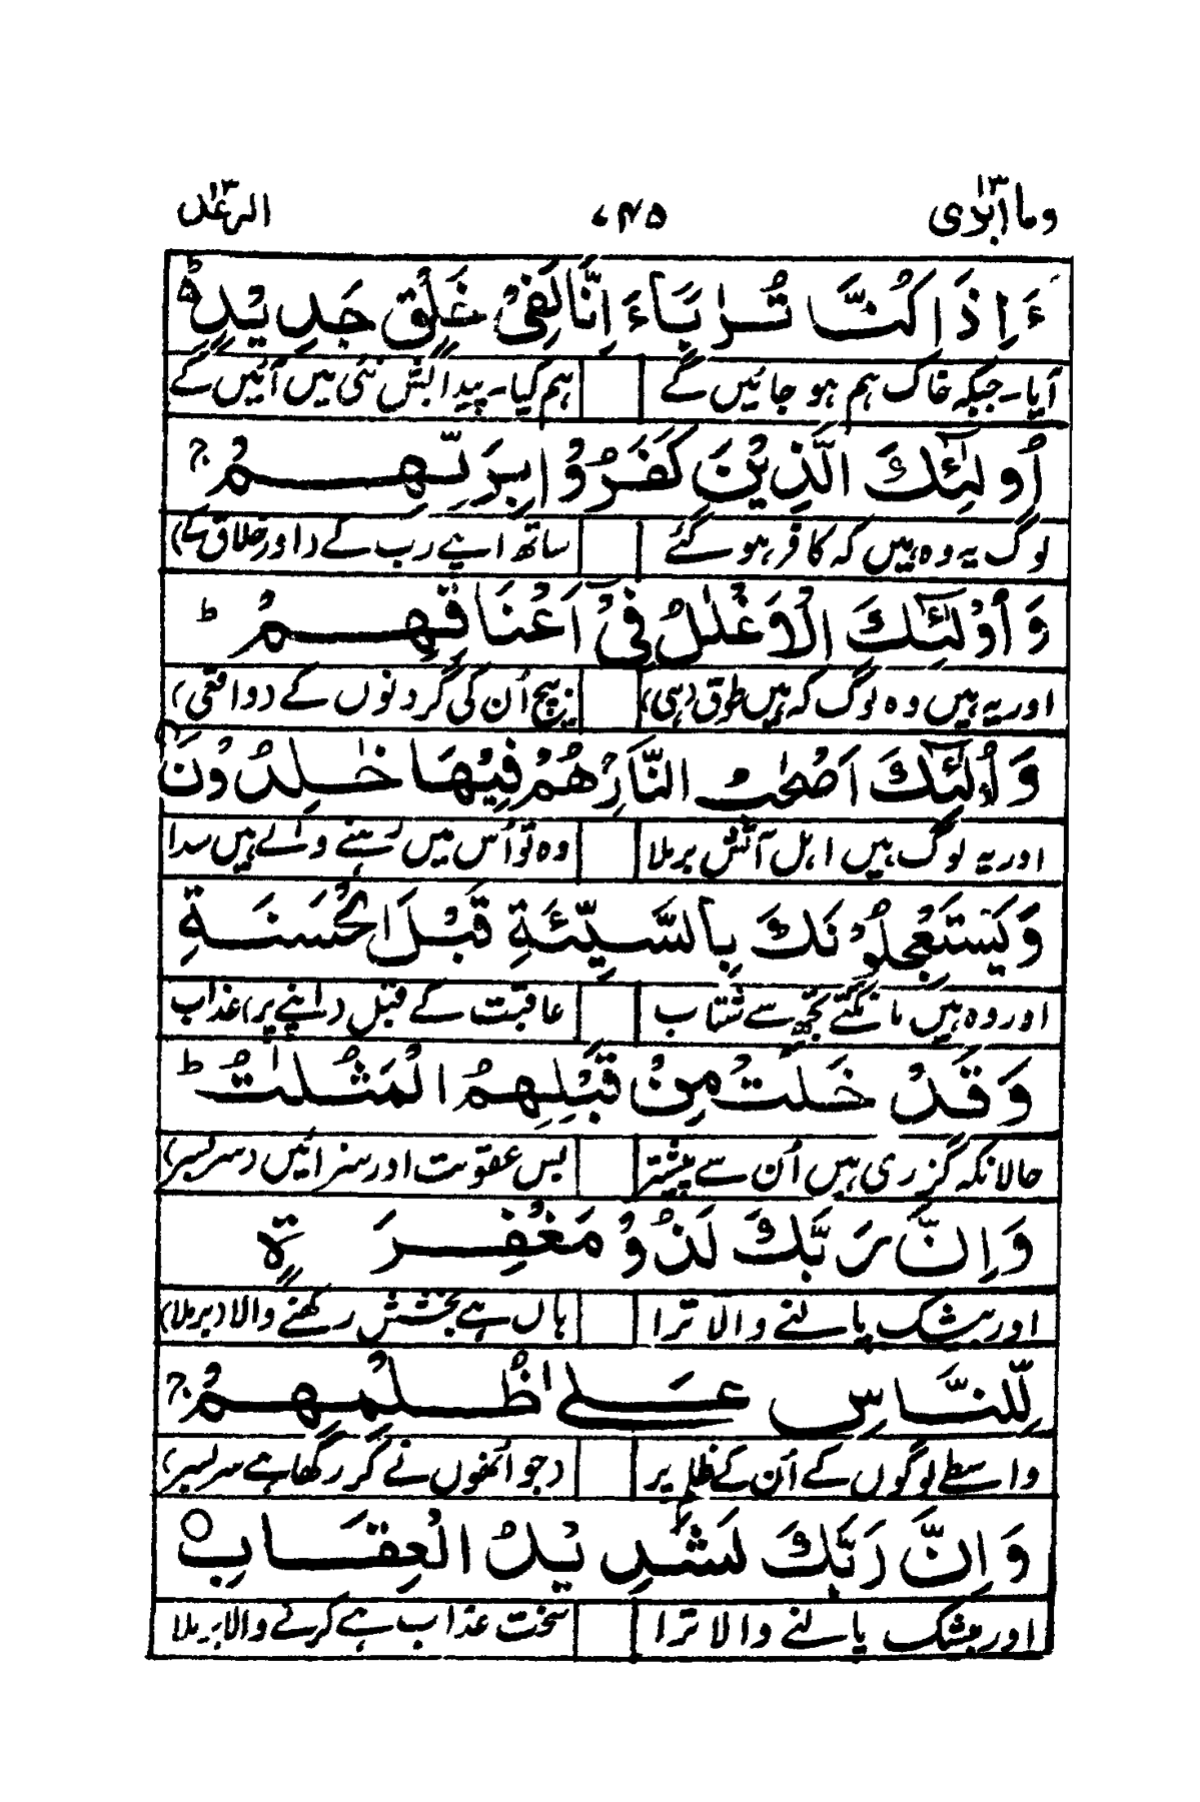 وما ابرئ ۱۳ ۷۴۵ الرعد ۱۳
ءَاِذَا كُنَّا تُرٰبًاءَ اِنَّا لَفِیْ خَلْقٍ جَدِیْدٍ ؕ۵
آیا۔ جبکہ خاک ہم ہو جائیں گے ہم کیا۔ پیدائش نئی میں آئیں گے
اُولٰٓئِكَ الَّذِیْنَ كَفَرُوْا بِرَبِّهِمْ ج
لوگ یہ وہ ہیں کہ کافر ہو گئے ساتھ اپنے رب کے (اور خلاق کے)
وَاُوْلٰٓئِكَ الْاَغْلٰلُ فِیْٓ اَعْنَاقِهِمْ ط
اور یہ ہیں وہ لوگ کہ ہیں طوق (ہی) بیچ اُن کی گردنوں کے (واقعی)
وَاُولٰٓئِكَ اَصْحٰبُ النَّارِ هُمْ فِیْهَا خٰلِدُوْنَ
اور یہ لوگ ہیں اہل آتش برملا وہ تو اُس میں رہنے والے ہیں سدا
وَیَسْتَعْجِلُوْنَكَ بِالسَّیِّئَةِ قَبْلَ الْحَسَنَةِ
اور وہ ہیں مانگتے تجھ سے شتاب عاقبت کے قبل (اپنے پر) عذاب
وَقَدْ خَلَتْ مِنْ قَبْلِهِمُ الْمَثُلٰتُ ط
حالانکہ گزری ہیں اُن سے پیشتر بس عقوبت اور سزائیں (سربسر)
وَاِنَّ رَبَّكَ لَذُوْ مَغْفِرَةٍ
اور بیشک پالنے والا ترا ہاں ہے بخشش رکھنے والا (برملا)
لِّلنَّاسِ عَلٰی ظُلْمِهِمْ ج
واسطے لوگوں کے اُن کے ظلم پر (جو اُنھوں نے کر رکھا ہے سربسر)
وَاِنَّ رَبَّكَ لَشَدِیْدُ الْعِقَابِ ○
اور بیشک پالنے والا ترا سخت عذاب ہے کرنے والا برملا